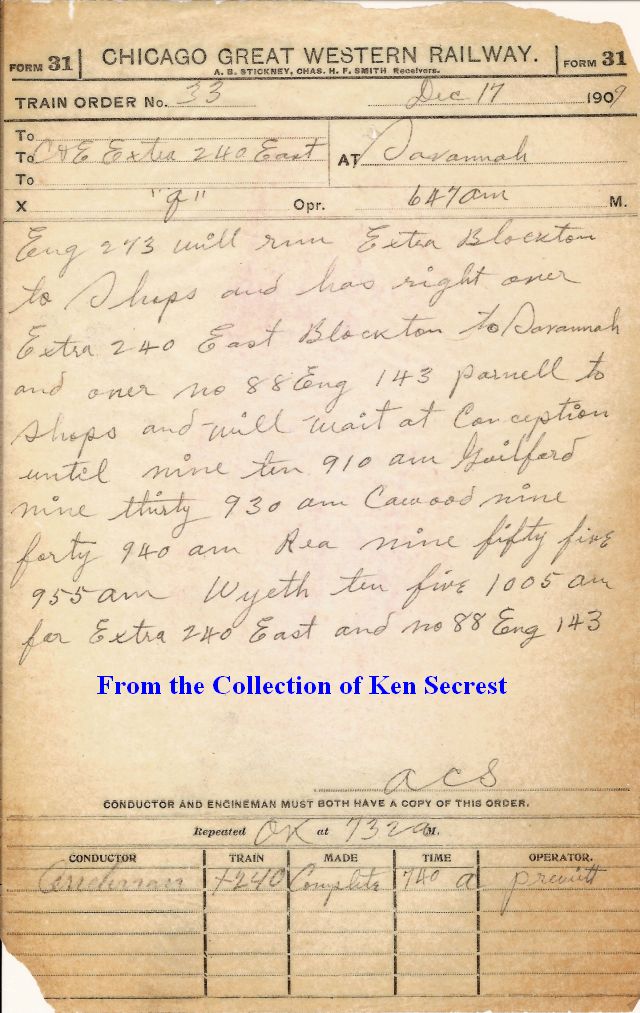 FORM 31 CHICAGO GREAT WESTERN RAILWAY. FORM 31
A. B. STICKNEY, CHAS. H. F. SMITH Receivers.
TRAIN ORDER No. 33 Dec 17 1909
To
To C&E Extra 240 East AT Savannah
To
X "g" Opr. 647am M.
Eng 273 will run Extra Blockton
to Shops and has right over
Extra 240 East Blockton to Savannah
and over no 88 Eng 143 Parnell to
Shops and will wait at Conception
until nine ten 910 am Guilford
nine thirty 930 am Cawood nine
forty 940 am Rea nine fifty five
955 am Wyeth ten five 1005 am
for Extra 240 East and no 88 Eng 143
From the Collection of Ken Secrest
ACS
CONDUCTOR AND ENGINEMAN MUST BOTH HAVE A COPY OF THIS ORDER.
Repeated OK at 732a M.
CONDUCTOR TRAIN MADE TIME OPERATOR.
X240 Complete 740 a Prewitt